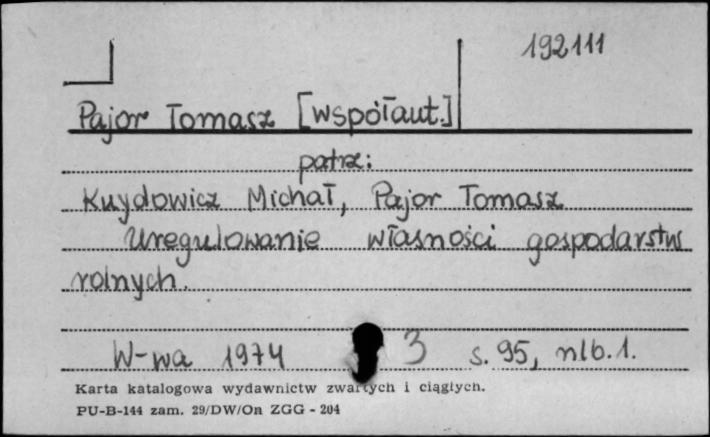 192111
Pajor Tomasz [współaut.]
patrz:
Kuydowicz Michał, Pajor Tomasz
Uregulowanie własności gospodarstw
rolnych.
W-wa 1974 3 s. 95, nlb. 1.
Karta katalogowa wydawnictw zwartych i ciągłych.
PU-B-144 zam. 29/DW/On ZGG - 204